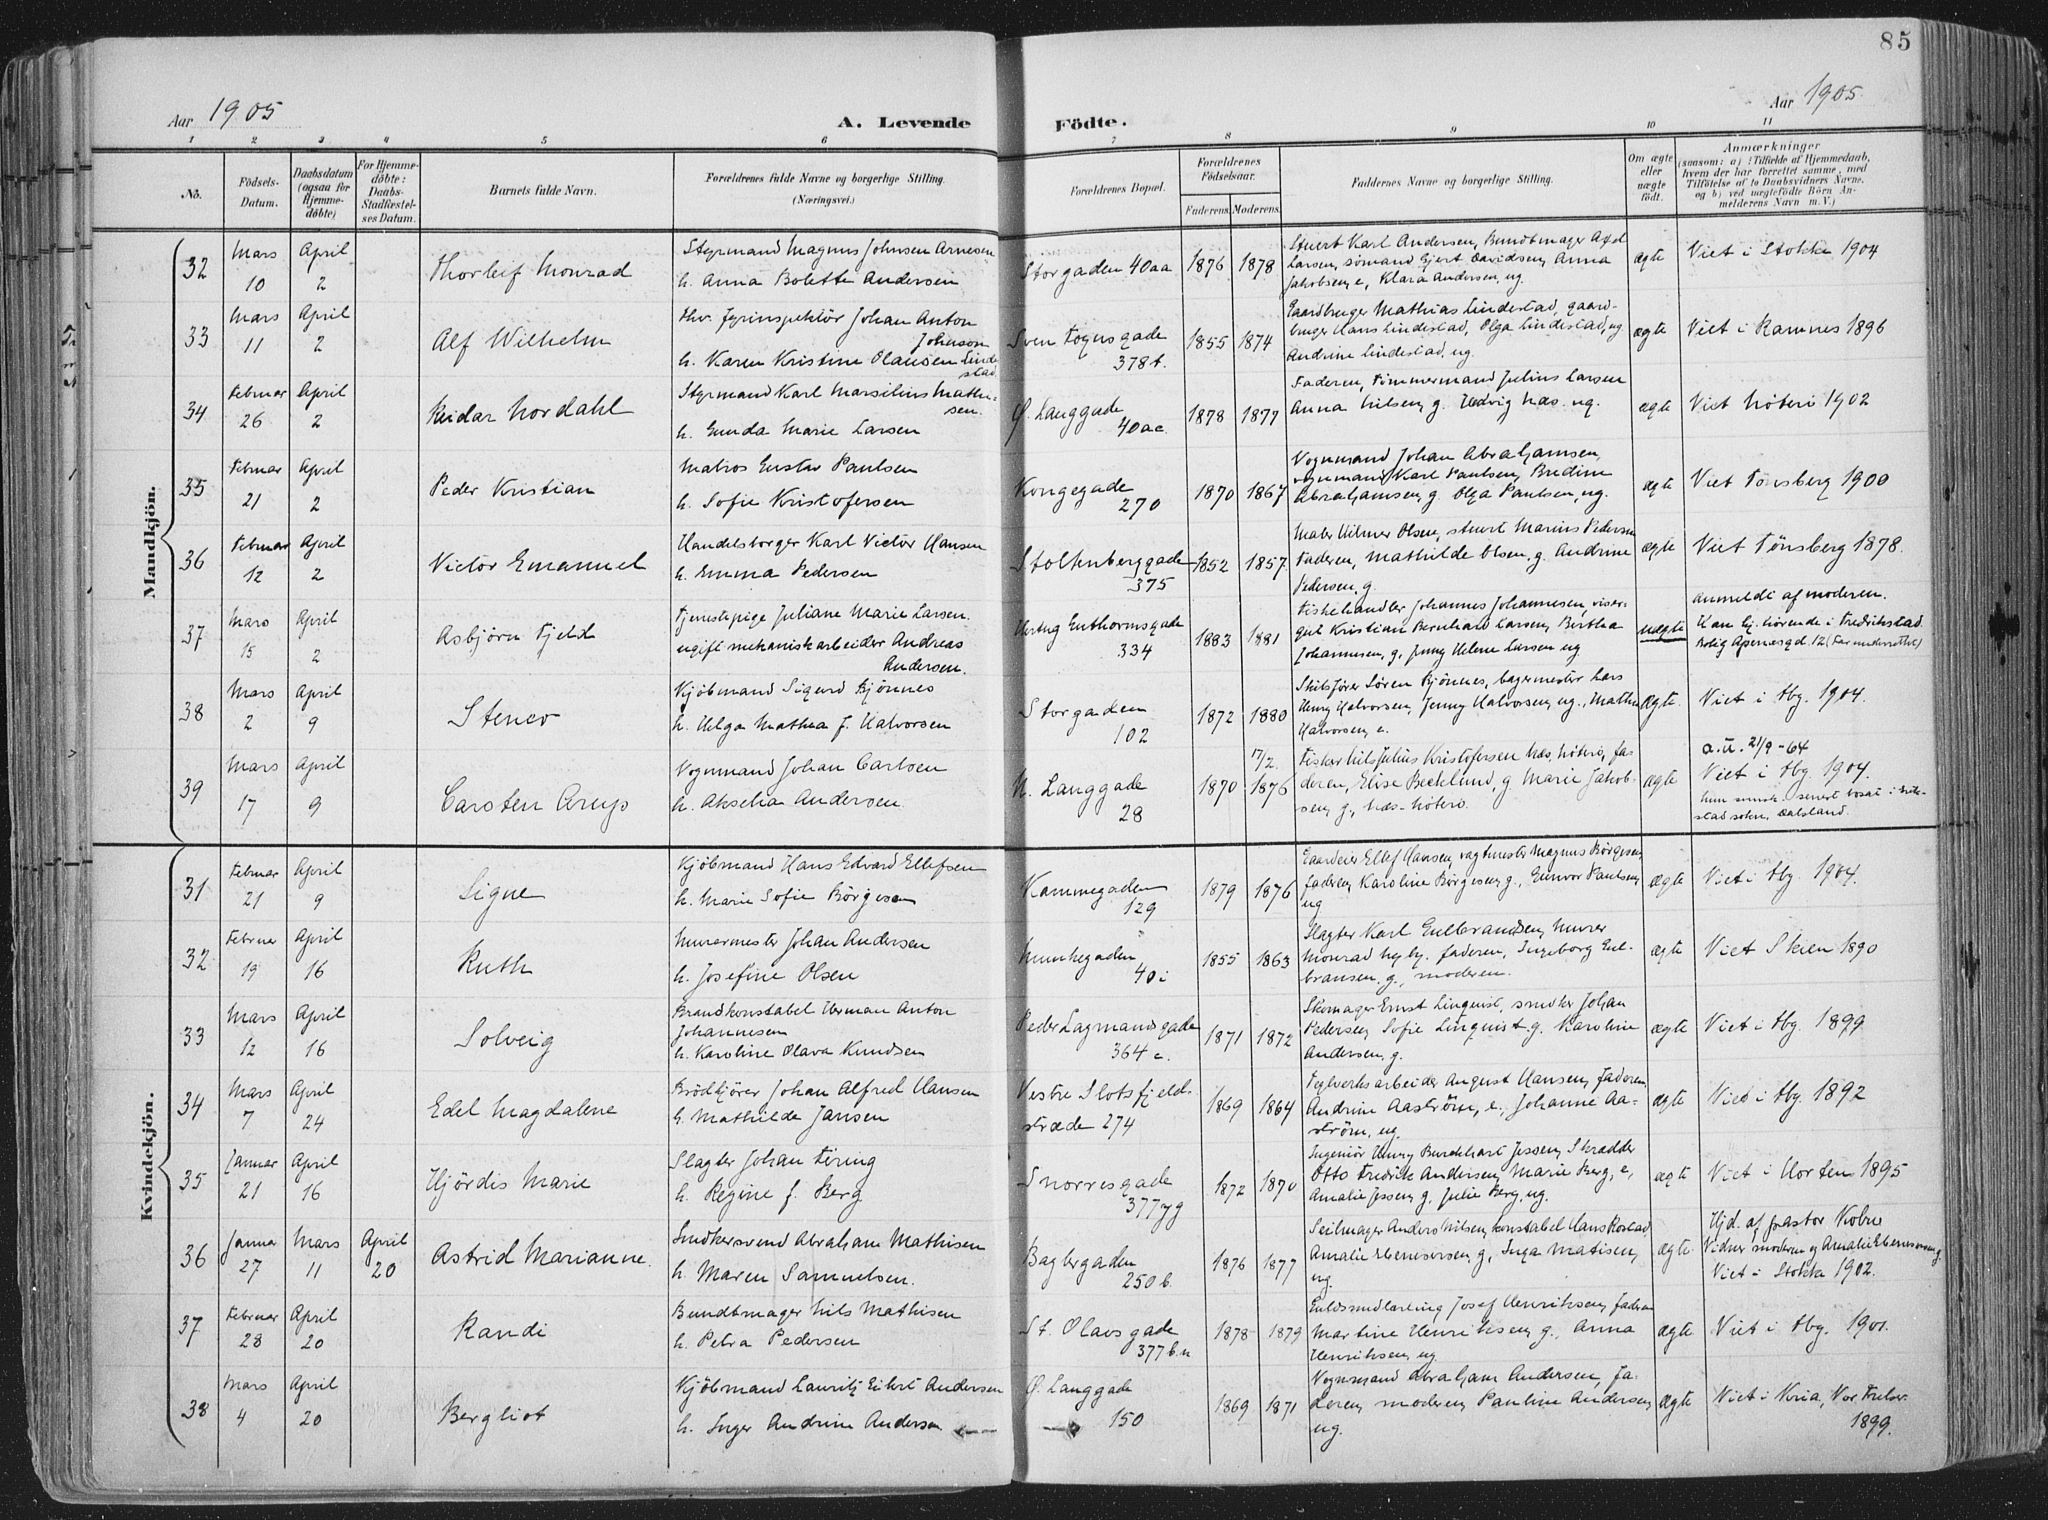 85
Aar 1905
A. Levende
Födte.
Aar 1905
1 2 3 4 5 6 7 8 9 10 11
No.
Födsels-
Datum.
Daabsdatum
(ogsaa for
Hjemme-
döbte)
For Hjemme-
döbte:
Daabs-
Stadfæstel-
ses Datum.
Barnets fulde Navn.
Forældrenes fulde Navne og borgerlige Stilling.
(Næringsvei.)
Forældrenes Bopæl.
Forældrenes
Födselsaar.
Faderens. Moderens.
Faddernes Navne og borgerlige Stilling.
Om ægte
eller
uægte
födt.
Anmærkninger
(saasom: a) i Tilfælde af Hjemmedaab,
hvem der har forrettet samme, med
Tilföielse af to Daabsvidners Navne,
og b) ved uægtefödte Börn An-
melderens Navn m. V.)
Mandkjön.
32
Mars
10
April
2
Thorleif Monrad
Styrmand Magnus Johnsen Arnesen
h. Anna Bolette Andersen
Storgaden 40aa
1876 1878
Stuert Karl Andersen, Bundtmager Axel
Larsen, sømand Gjert Davidsen, Anna
Jakobsen, e, Klara Andersen, ug.
ægte
Viet i Stokke 1904
33
Mars
11
April
2
Alf Wilhelm
Hv. fyrinspektör Johan Anton
Johnson
h. Karen Kristine Olausen Linde
stad.
Sven Foynsgade
378t.
1855 1874
Gaardbruger Mathias Lindestad, gaard-
bruger Hans Lindestad, Olga Lindestad, ug
Andrine Lindestad, ug.
ægte
Viet i Ramnes 1896
34
Februar
26
April
2
Reidar Nordahl
Styrmand Karl Marsilius Mathi-
sen.
h. Gunda Marie Larsen
Ø. Langgade
40ac.
1878 1877
Faderen, tømmermand Julius Larsen
Anna Nilsen, g. Hedvig Næs. ug.
ægte
Viet Nøterø 1902
35
Februar
21
April
2
Peder Kristian
Matros Gustav Paulsen
h. Sofie Kristofersen
Kongegade
270
1870 1867
Vognmand Johan Abrahamsen,
vognmand Karl Paulsen, Bredine
Abrahamsen, g. Olga Paulsen, ug.
ægte
Viet Tønsberg 1900
36
Februar
12
April
2
Victor Emanuel
Handelsborger Karl Victor Hansen
h. Emma Pedersen
Stoltenberggade
375
1852 1857
Maler Hilmer Olsen, stuert Marius Pedersen
Faderen, Mathilde Olsen, g. Andrine
Pedersen, g.
ægte
Viet Tønsberg 1878.
37
Mars
15
April
2
Asbjörn Fjeld
Tjenestepige Juliane Marie Larsen.
ugift mekanisk arbeider Andreas
Andersen.
Hertug Guthormsgade
334
1883 1881
Fiskehandler Johannes Johannesen, viser-
gut Kristian Bernhard Larsen, Birthe
Johannesen, g, Jenny Helene Larsen ug
uægte
Anmeldt af moderen.
Han hj. hörende i Fredrikstad
Bolig Apenesgd. 12 (Far underrettet)
38
Mars
2
April
9
Stener
Kjöbmand Sigurd Bjönnes
h. Helga Mathea f. Halvorsen
Storgaden
102
1872 1880
Skibsfører Sören Bjönnes, bagermester Lars
Henry Halvorsen, Jenny Halvorsen, ug., Mathea
Halvorsen, e.
ægte.
Viet i Tbg. 1904.
39
Mars
17
April
9
Carsten Arup
Vognmand Johan Carlsen
h. Akselia Andersen
N. Langgade
28
1870
17/2.
1876
Fisker Nils Julius Kristofersen Næs, Nøterø, fa-
deren, Elise Becklund, g Marie Jakob-
sen, g., Næs-Nøterø.
ægte
a.u. 21/9-64
Viet i Tbg. 1904.
Kvindekjön.
31
Februar
21
April
9
Signe
Kjöbmand Hans Edvard Ellefsen
h. Marie Sofie Börgesen
Kammegaden
129
1879 1876
Gaardeier Ellef Hansen, vagtmester Magnus Börgesen,
faderen, Karoline Börgesen, g., Gunvor Paulsen,
ug
ægte
Viet i Tbg. 1904.
32
Februar
19
April
16
Ruth
Murermester Johan Andersen
h. Josefine Olsen
Munkegaden
40i
1855 1863
Slagter Karl Gulbrandsen, Murer
Monrad Nyby, faderen, Ingeborg Gul-
bransen, g., moderen.
ægte
Viet Skien 1890
33
Mars
12
April
16
Solveig
Brandkonstabel Herman Anton
Johannesen
h. Karoline Olava Knudsen
Peder Lagmandsgade
364c.
1871 1872
Skomager Ernst Linquist, snedker Johan
Pedersen, Sofie Linquist, g. Karoline
Andersen, g.
ægte
Viet i Tbg. 1899
34
Mars
7
April
24
Edel Magdalene
Brödkjörer Johan Alfred Hansen
h. Mathilde Jansen
Vestre Slotsfjeld-
stræde 274
1869 1864
Teglverksarbeider August Hansen, faderen,
Andrine Aaström, e., Johanne Aa-
ström, ug.
ægte
Viet i Tbg. 1892
35
Januar
21
April
16
Hjördis Marie
Slagter Johan Föring
h. Regine f. Berg
Snorresgade
377yg
1872 1870
Ingeniör Henry Burchhart Jessen, Skrædder
Otto Fredrik Andersen, Marie Berg, e,
Amalie Jessen, g, Julie Berg, ug.
ægte
Viet i Horten 1895
36
Januar
27
Mars
11
April
20
Astrid Marianne.
Snedkersvend Abraham Mathisen
h. Maren Samuelsen.
Bagbergaden
250b.
1876 1877
Seilmager Anders Nilsen, konstabel Hans Rostad,
Amalie Ebenesersen, g., Inga Matisen,
ug.
ægte.
Hjd. af pastor Kobro
Vidner moderen og Amalie Ebenesersen, g.
Viet i Stokke 1902.
37
Februar
28
April
20
Randi
Bundtmager Nils Mathisen
h. Petra Pedersen
St. Olavsgade
377b.n
1878 1879
Guldsmedlærling Josef Henriksen, faderen
Martine Henriksen, g., Anna
Henriksen, ug.
ægte
Viet i Tbg. 1901.
38
Mars
4
April
20
Bergliot
Kjöbmand Lauritz Eilert Andersen
h. Inger Andrine Andersen
Ø. Langgade
150
1869 1871
Vognmand Abraham Andersen, fa-
deren, moderen, Pauline Andersen,
ug.
ægte
Viet i Kria, Nor Trelw.
1899.